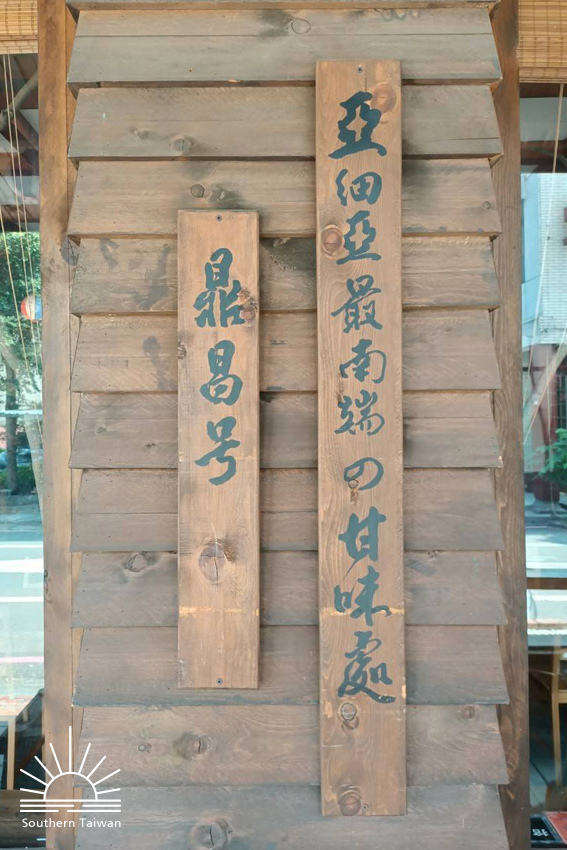 亞細亞最南端の甘味處
鼎昌号
Southern Taiwan